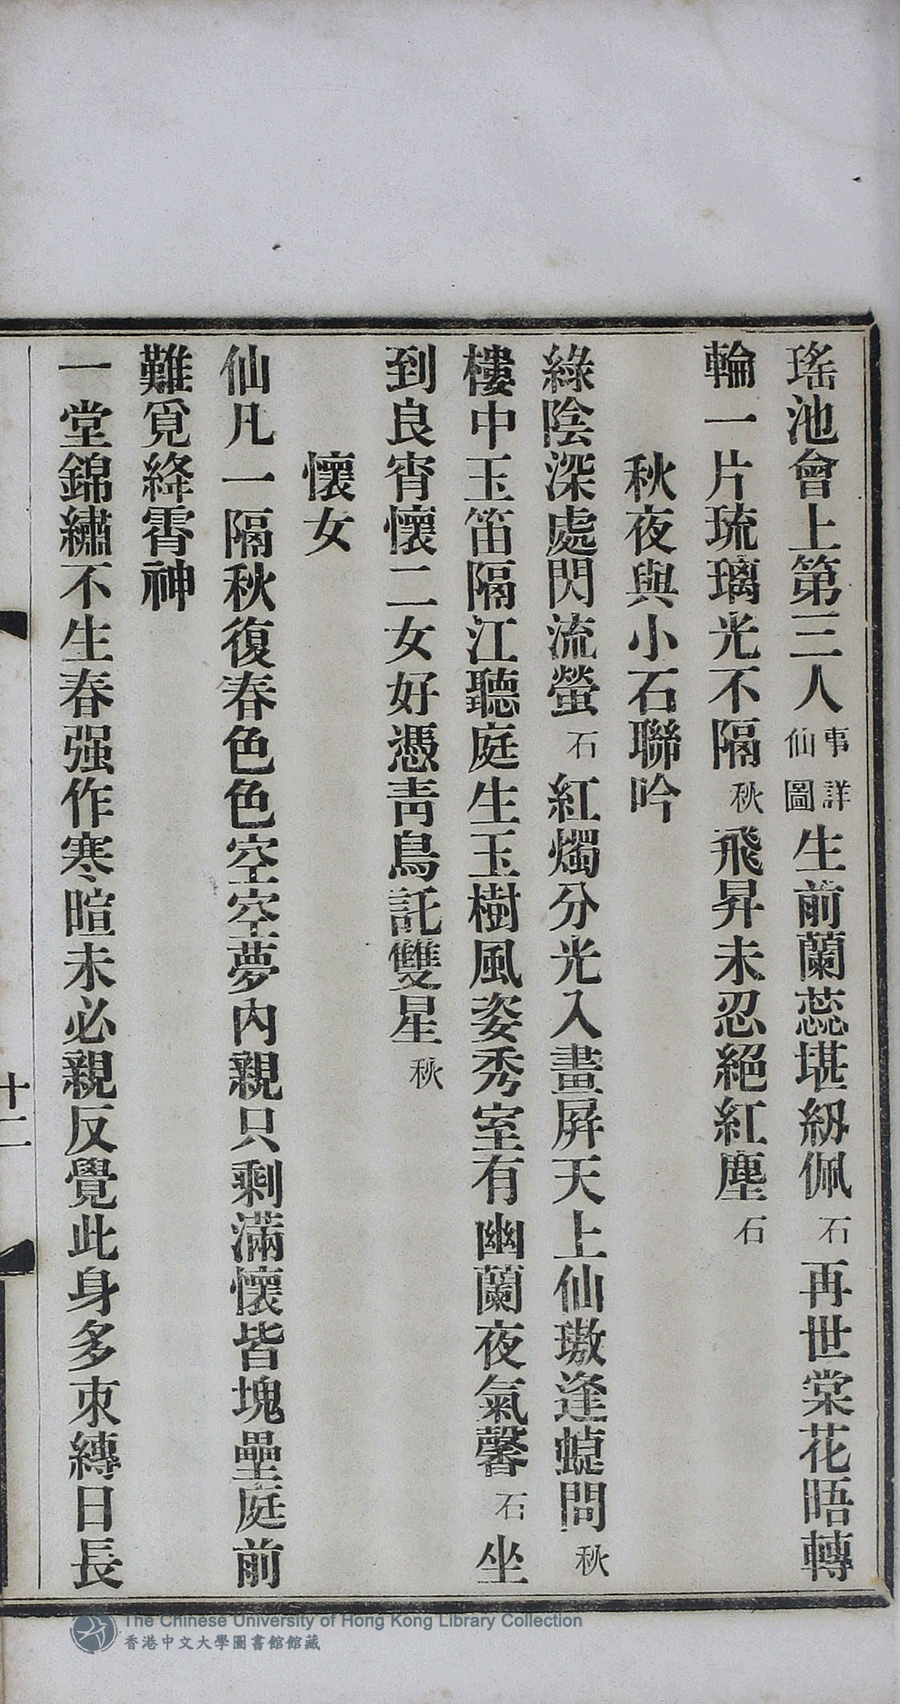 瑤池會上第三人事詳仙圖生前蘭蕊堪紉佩石再世棠花晤轉
輪一片琉璃光不隔秋飛昇未忍絕紅塵石
秋夜與小石聯吟
綠陰深處閃流螢石紅燭分光入畫屛天上仙璈逢蜨問秋
樓中玉笛隔江聽庭生玉樹風姿秀室有幽蘭夜氣馨石坐
到良宵懷二女好憑靑鳥託雙星秋
懷女
仙凡一隔秋復春色色空空夢內親只剩滿懷皆塊壘庭前
難覓絳霄神
一堂錦繡不生春强作寒暄未必親反覺此身多束縛日長
十二
The Chinese University of Hong Kong Library Collection
香港中文大學圖書館館藏